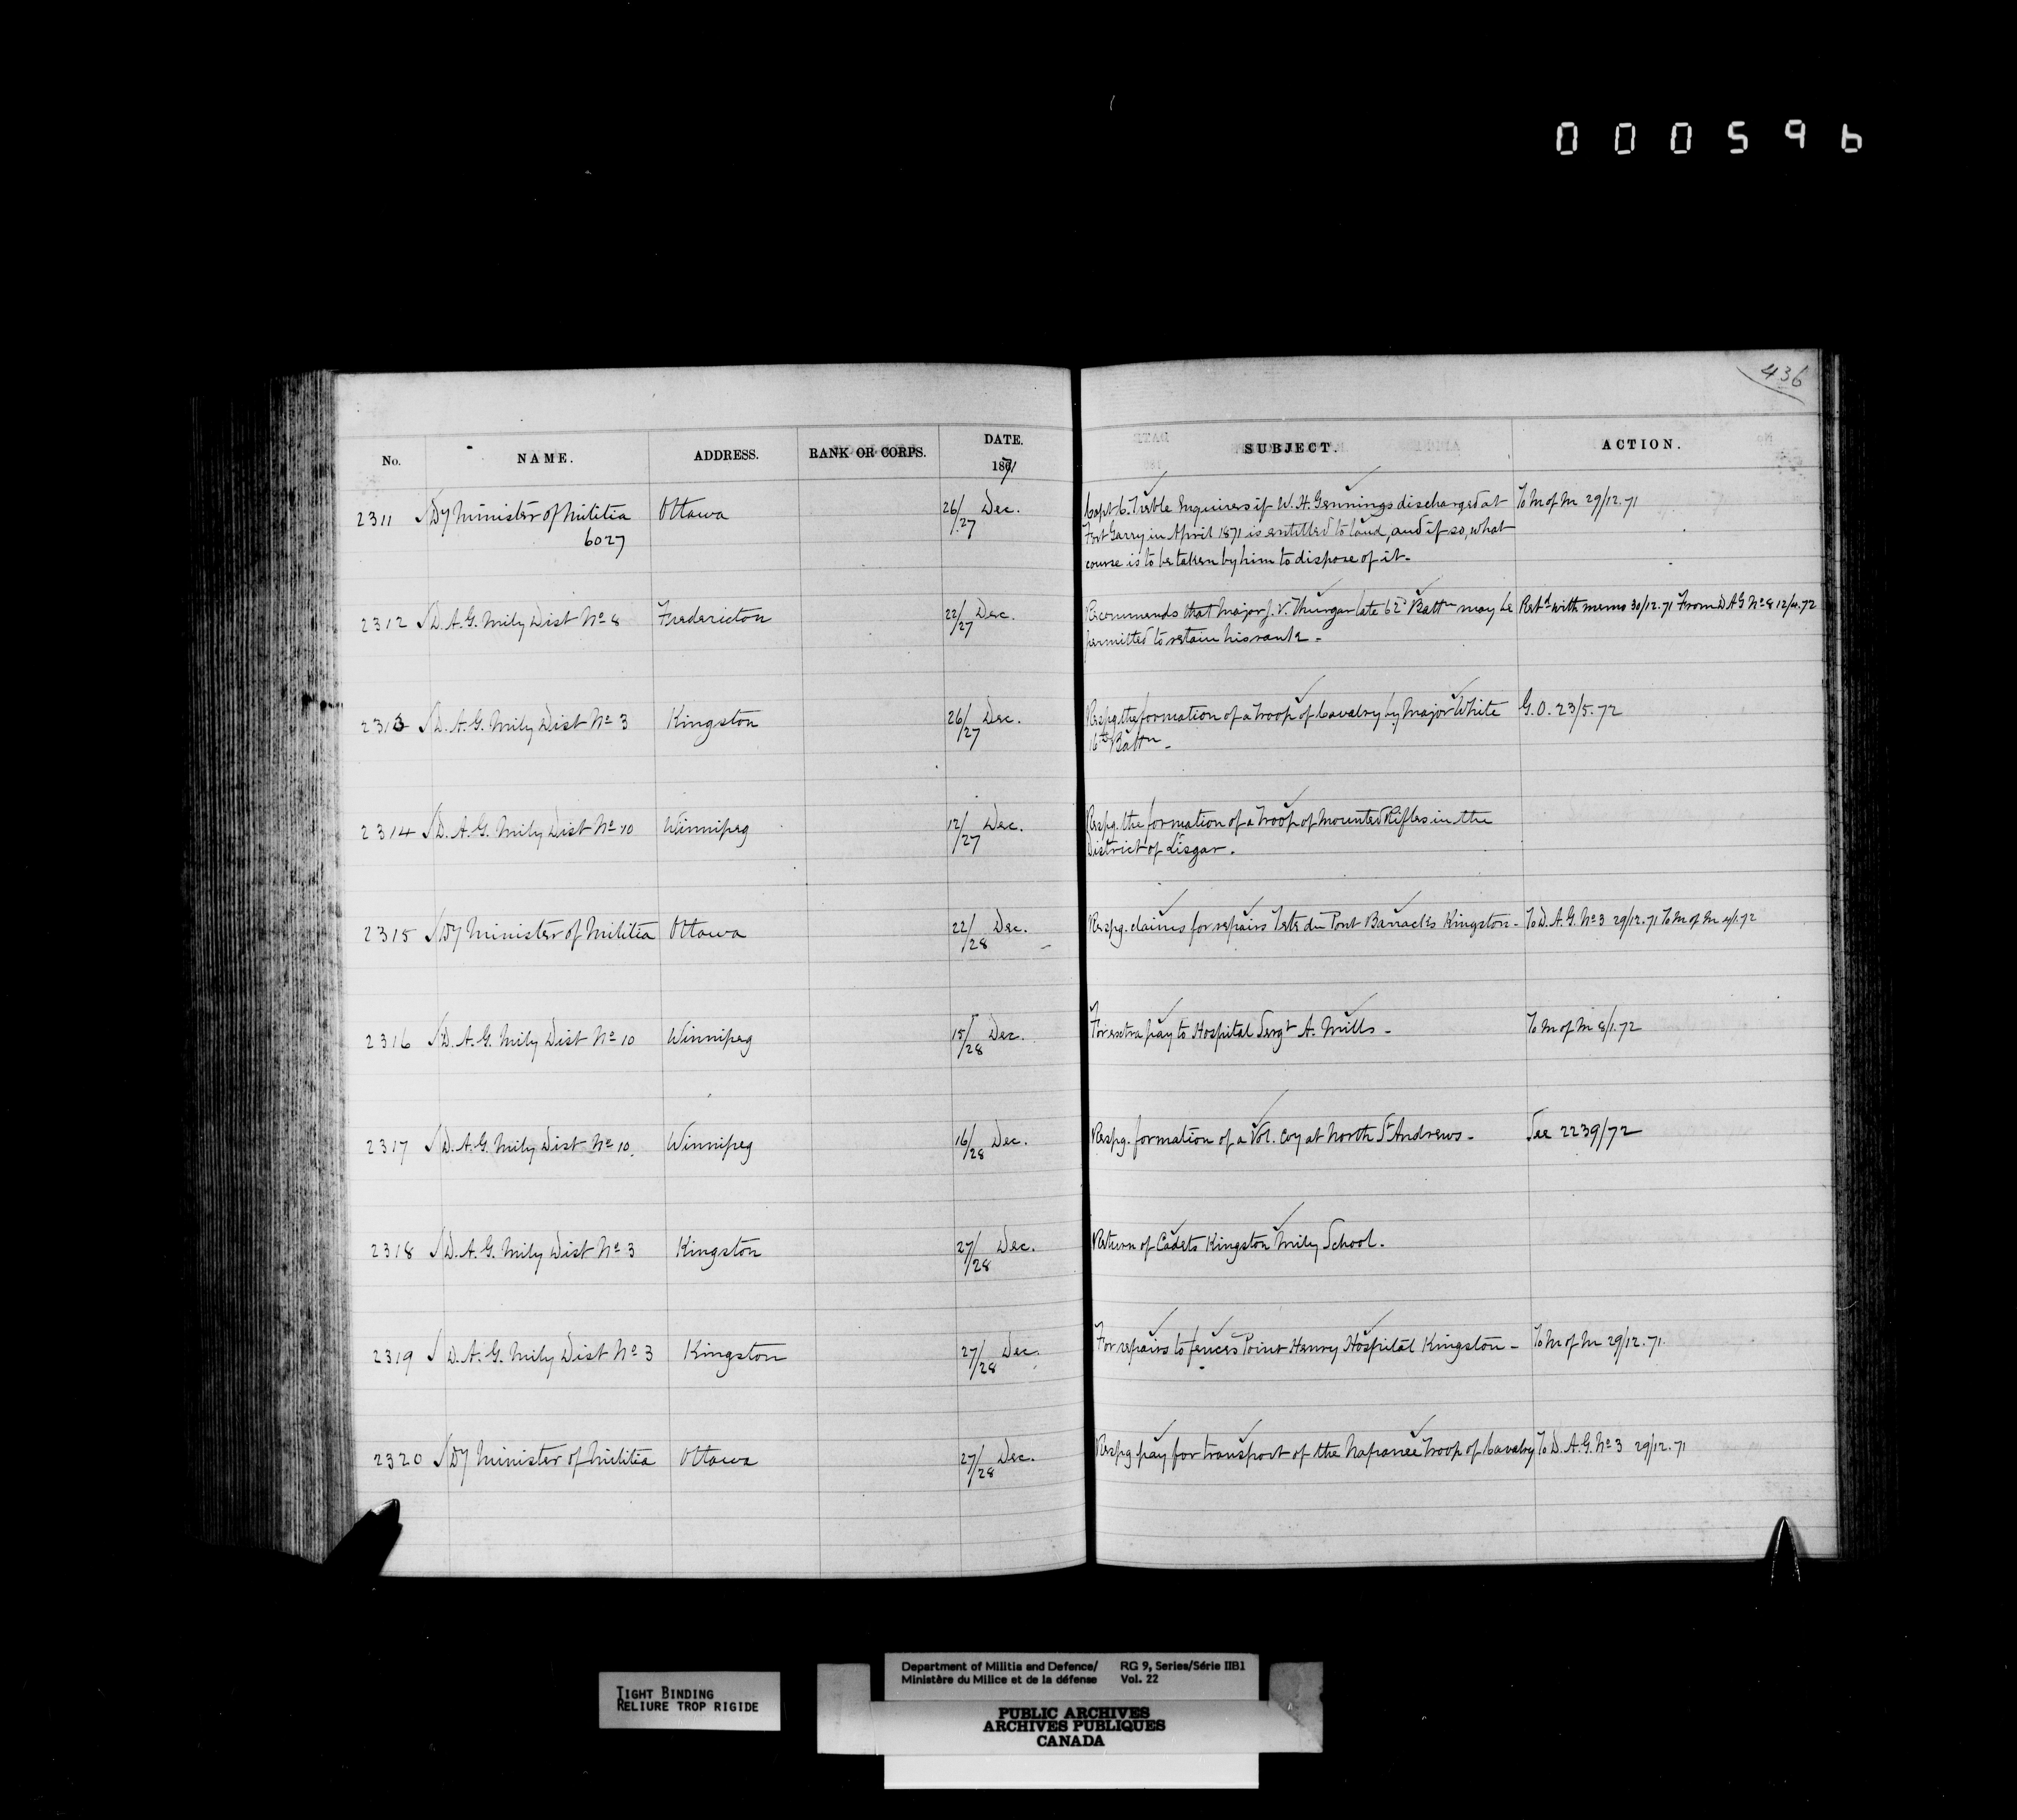 000596
436
No. NAME. ADDRESS. RANK OR CORPS. DATE. 1871 SUBJECT. ACTION.
2311 Dy Minister of Militia Ottawa 26/27 Dec. Capt C. Treble Enquires if W. H. Gennings discharged at To M of M 29/12.71
6027 Fort Garry in April 1871 is entitled to land, and if so, what
course is to be taken by him to dispose of it-
2312 D. A. G. Mily Dist No 8 Fredericton 22/27 Dec. Recommends that Major J. V. Thurgar late 62d Battn may be Retd with memo 30/12.71 From D A G No 8 12/4.72
permitted to retain his rank -
2313 D. A. G. Mily Dist No 3 Kingston 26/27 Dec. Respg. the formation of a Troop of Cavalry by Major White G. O. 23/5.72
16th Battn -
2314 D. A. G. Mily Dist No 10 Winnipeg 12/27 Dec. Respg. the formation of a Troop of Mounted Rifles in the
District of Lisgar.
2315 Dy Minister of Militia Ottawa 22/28 Dec. Respg. claims for repairs Tete du Pont Barracks Kingston - To D. A. G. No 3 29/12.71 To M of M 4/1.72
2316 D. A. G. Mily Dist No 10 Winnipeg 15/28 Dec. For extra pay to Hospital Sergt A. Mills - To M of M 8/1.72
2317 D. A. G. Mily Dist No 10. Winnipeg 16/28 Dec. Respg. formation of a Vol. Coy at North St Andrews - See 2239/72
2318 D. A. G. Mily Dist No 3 Kingston 27/28 Dec. Return of Cadets Kingston Mily School.
2319 D. A. G. Mily Dist No 3 Kingston 27/28 Dec. For repairs to fences Point Henry Hospital Kingston - To M of M 29/12.71.
2320 Dy Minister of Militia Ottawa 27/28 Dec. Respg pay for transport of the Napanee Troop of Cavalry To D. A. G. No 3 29/12.71
TIGHT BINDING
RELIURE TROP RIGIDE
Department of Militia and Defence/ RG 9, Series/Série IIB1
Ministère du Milice et de la défense Vol. 22
PUBLIC ARCHIVES
ARCHIVES PUBLIQUES
CANADA